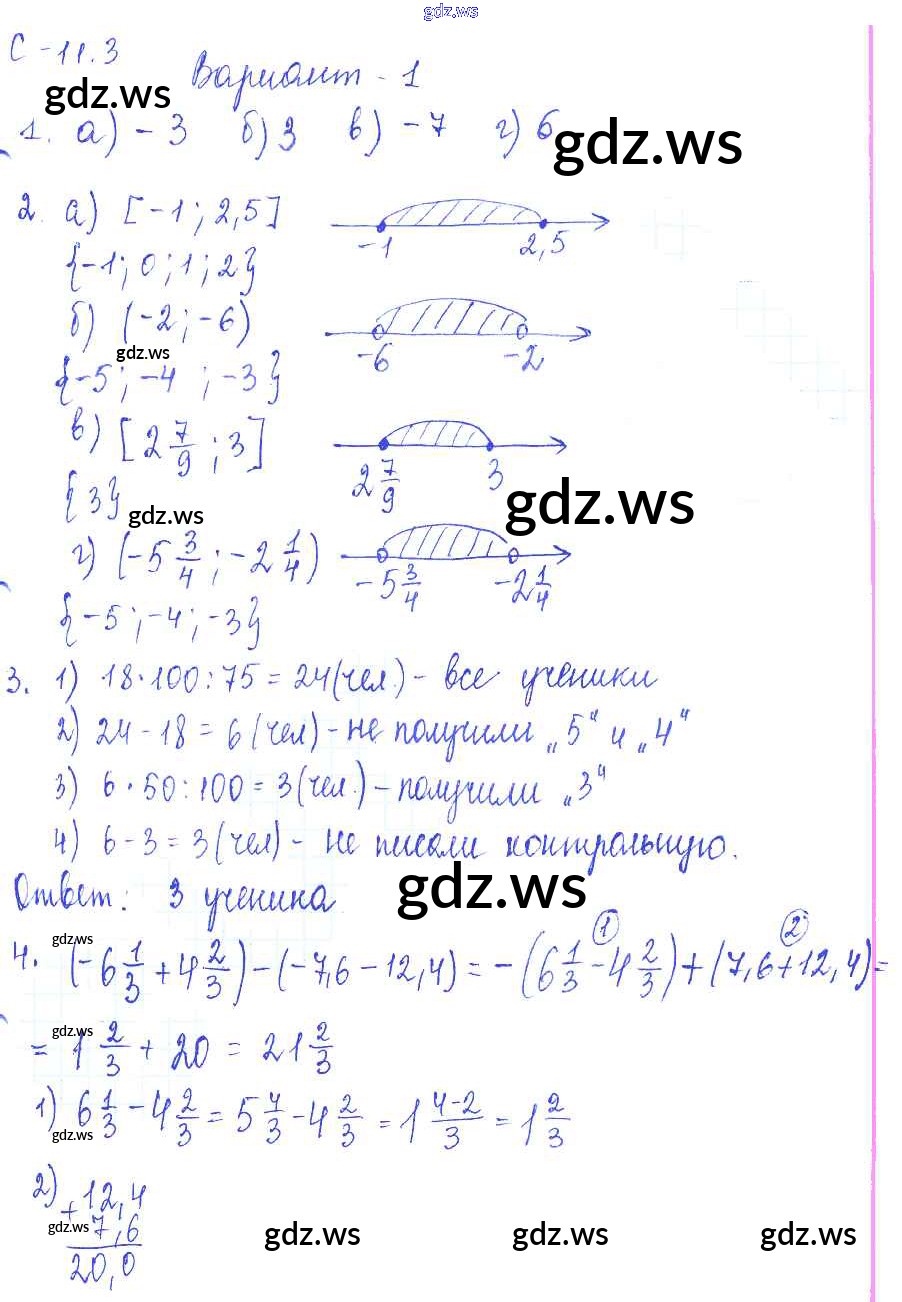 gdz.ws
С-11.3
gdz.ws
Вариант - 1
1. а) -3 б) 3 в) -7 г) 6
gdz.ws
2. а) [-1; 2,5] -1 2,5
{-1; 0; 1; 2}
б) (-2; -6) -6 -2
gdz.ws
{-5; -4; -3}
в) [2 7/9; 3] 2 7/9 3
{3}
gdz.ws gdz.ws
г) (-5 3/4; -2 1/4) -5 3/4 -2 1/4
{-5; -4; -3}
3. 1) 18·100:75=24(чел.) - все ученики
2) 24-18=6(чел) - не получили „5“ и „4“
3) 6·50:100=3(чел.) - получили „3“
4) 6-3=3(чел) - не писали контрольную.
gdz.ws
Ответ: 3 ученика
gdz.ws
1 2
4. (-6 1/3 + 4 2/3) - (-7,6 - 12,4) = -(6 1/3 - 4 2/3) + (7,6 + 12,4) =
gdz.ws
= 1 2/3 + 20 = 21 2/3
1) 6 1/3 - 4 2/3 = 5 4/3 - 4 2/3 = 1 4-2/3 = 1 2/3
gdz.ws
2) +12,4
7,6
gdz.ws gdz.ws gdz.ws gdz.ws
20,0